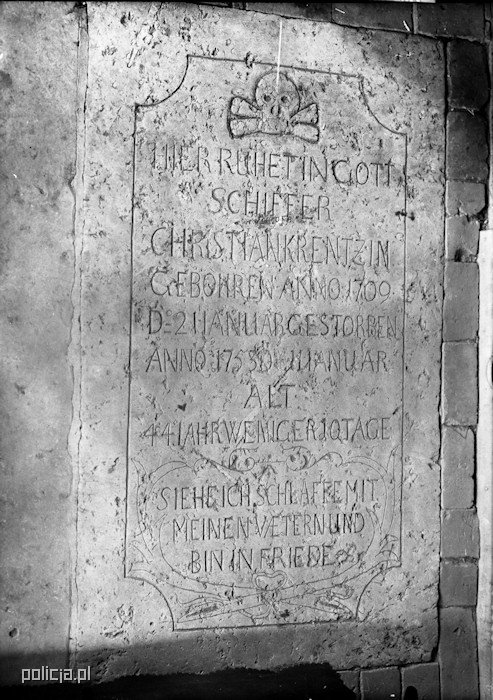 HIER RUHET IN GOTT
SCHIFFER
CHRISTIAN KRENTZIN
GEBOHREN ANNO 1709
D 21 IANUAR GESTORBEN
ANNO 1753 D IANUAR
ALT
44 IAHR WENIGER 10 TAGE
SIEHE ICH SCHLAFFE MIT
MEINEN VETERN UND
BIN IN FRIEDE
policja.pl